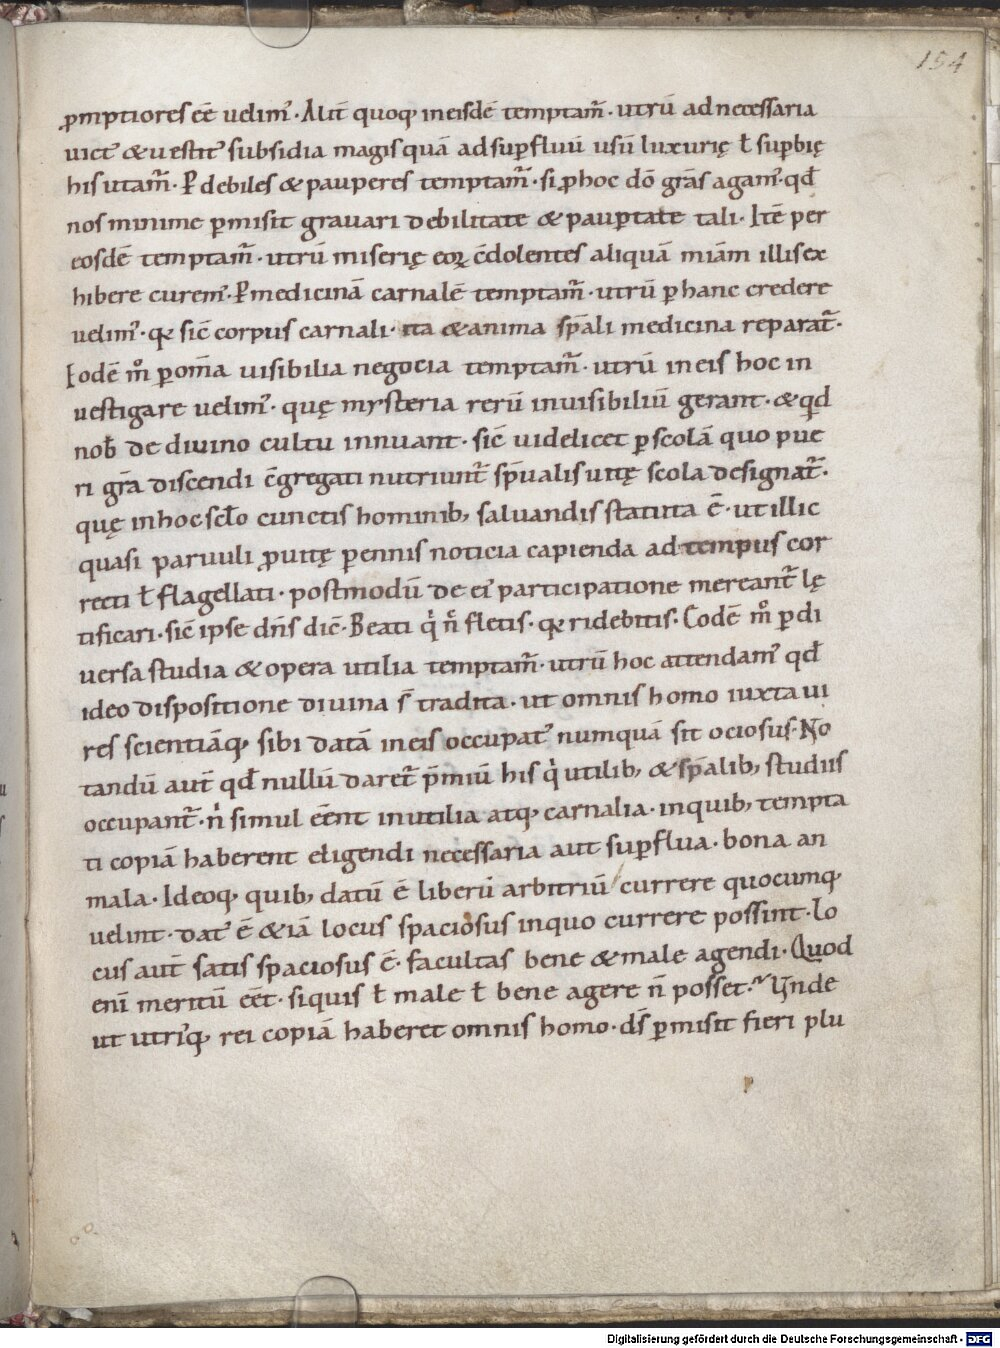 154
ꝓmptiores eē uelim᾿. Alit̄ quoq; in eisdē temptam̄. utrū ad necessaria
uict᾿ & uestit᾿ subsidia magis quā ad suꝑfluū usū luxurię ł suꝑbię
his utam̄. Ꝑ debiles & pauperes temptam̄. si ꝓ hoc dō gr̄as agam᾿. qđ
nos minime ꝑmisit grauari debilitate & pauꝑtate tali. Itē per
eosdē temptam̄. utrū miserię eoꝝ c̄dolentes aliquā miām illis ex
hibere curem᾿. Ꝑ medicinā carnalē temptam̄. utrū ꝑ hanc credere
uelim᾿. qꝛ sic̄ corpus carnali. ita & anima sp̄ali medicina reparat̄.
Eodē m̊ ꝑ om̄a uisibilia negocia temptam̄. utrū in eis hoc in
uestigare uelim᾿. quę mysteria rerū inuisibiliū gerant. & qd
nob̄ de diuino cultu innuant. sic̄ uidelicet ꝑ scolā quo pue
ri gr̄a discendi c̄gregati nutriunt̄ sp̄ualis uitę scola designat̄.
quę in hoc sc̄lo cunctis hominib; saluandis statuta ē. ut illic
quasi paruuli ꝓ uitę ꝑennis noticia capienda ad tempus cor
recti ł flagellati. postmodū de ei᾿ participatione mereant̄ lę
tificari. sic̄ ipse dn̄s dic̄. Beati qi n̄ fletis. qꝛ ridebitis. Eodē m̊ ꝑ di
uersa studia & opera utilia temptam̄. utrū hoc attendam᾿ qđ
ideo dispositione diuina s̄ tradita. ut omnis homo iuxta ui
res scientiāq; sibi datā in eis occupat᾿ numquā sit ociosus. No
tandū aut̄ qđ nullū daret̄ p̄miū his qi utilib; & sp̄alib; studiis
occupant̄. ni simul eēnt inutilia atq; carnalia. in quib; tempta
ti copiā haberent eligendi necessaria aut suꝑflua. bona an
mala. Ideoq; quib; datū ē liberū arbitriū currere quocumq;
uelint. dat᾿ ē & iā locus spaciosus in quo currere possint. Lo
cus aut̄ satis spaciosus ē. facultas bene & male agendi. Quod
enī meritū eēt. si quis ł male ł bene agere n̄ posset. Vnde
ut utri᾿q; rei copiā haberet omnis homo. ds̄ ꝑmisit fieri plu
Digitalisierung gefördert durch die Deutsche Forschungsgemeinschaft - DFG